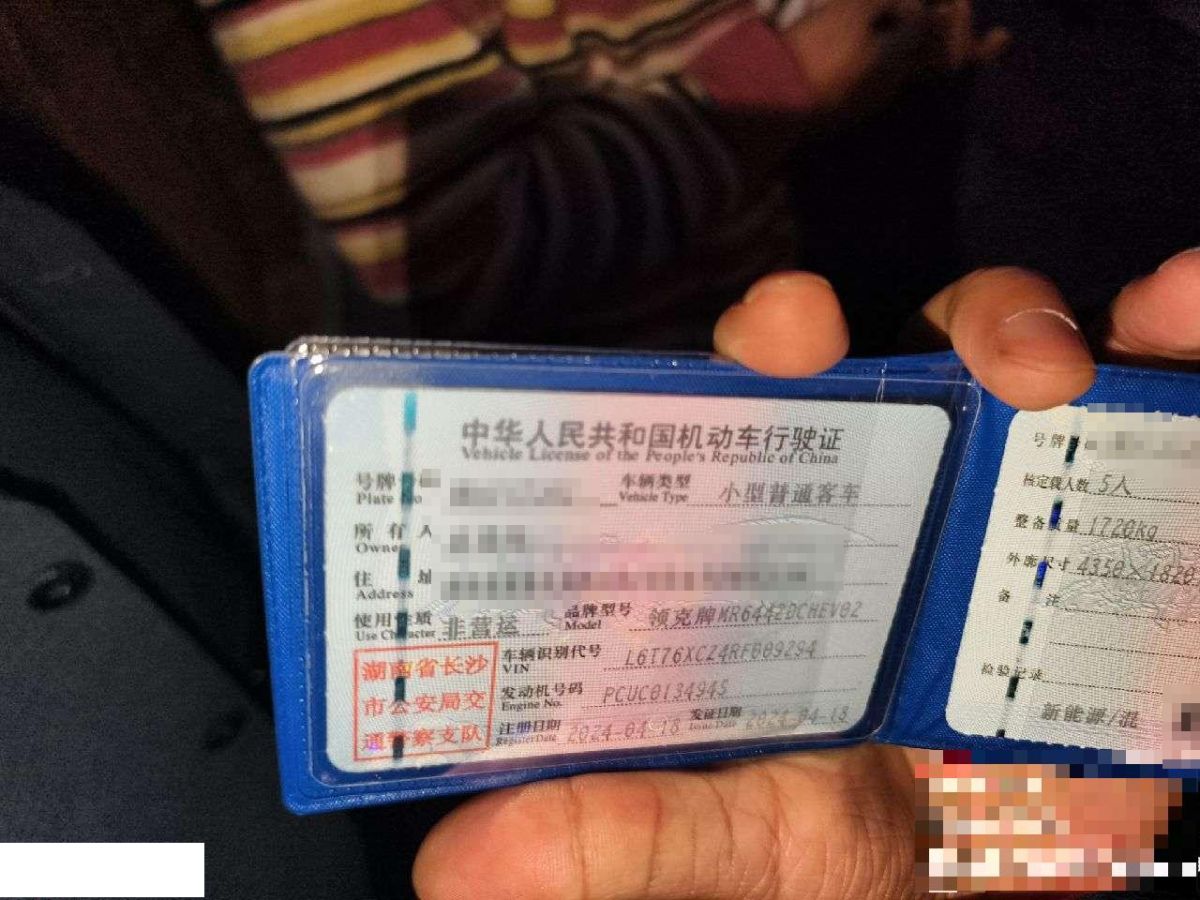 中华人民共和国机动车行驶证
Vehicle License of the People's Republic of China
号牌
Plate No
车辆类型
Vehicle Type
小型普通客车
所有人
Owner
住址
Address
使用性质
Use Character
非营运
品牌型号
Model
领克牌MR6442DCHEV02
湖南省长沙
市公安局交
通警察支队
车辆识别代号
VIN
L6T76XCZ4RF009294
发动机号码
Engine No.
PCUC0134945
注册日期
Register Date
2024-04-18
发证日期
Issue Date
2024-04-18
号牌
核定载人数 5人
整备质量 1720kg
外廓尺寸 4350×1820
备注
检验记录
新能源/混